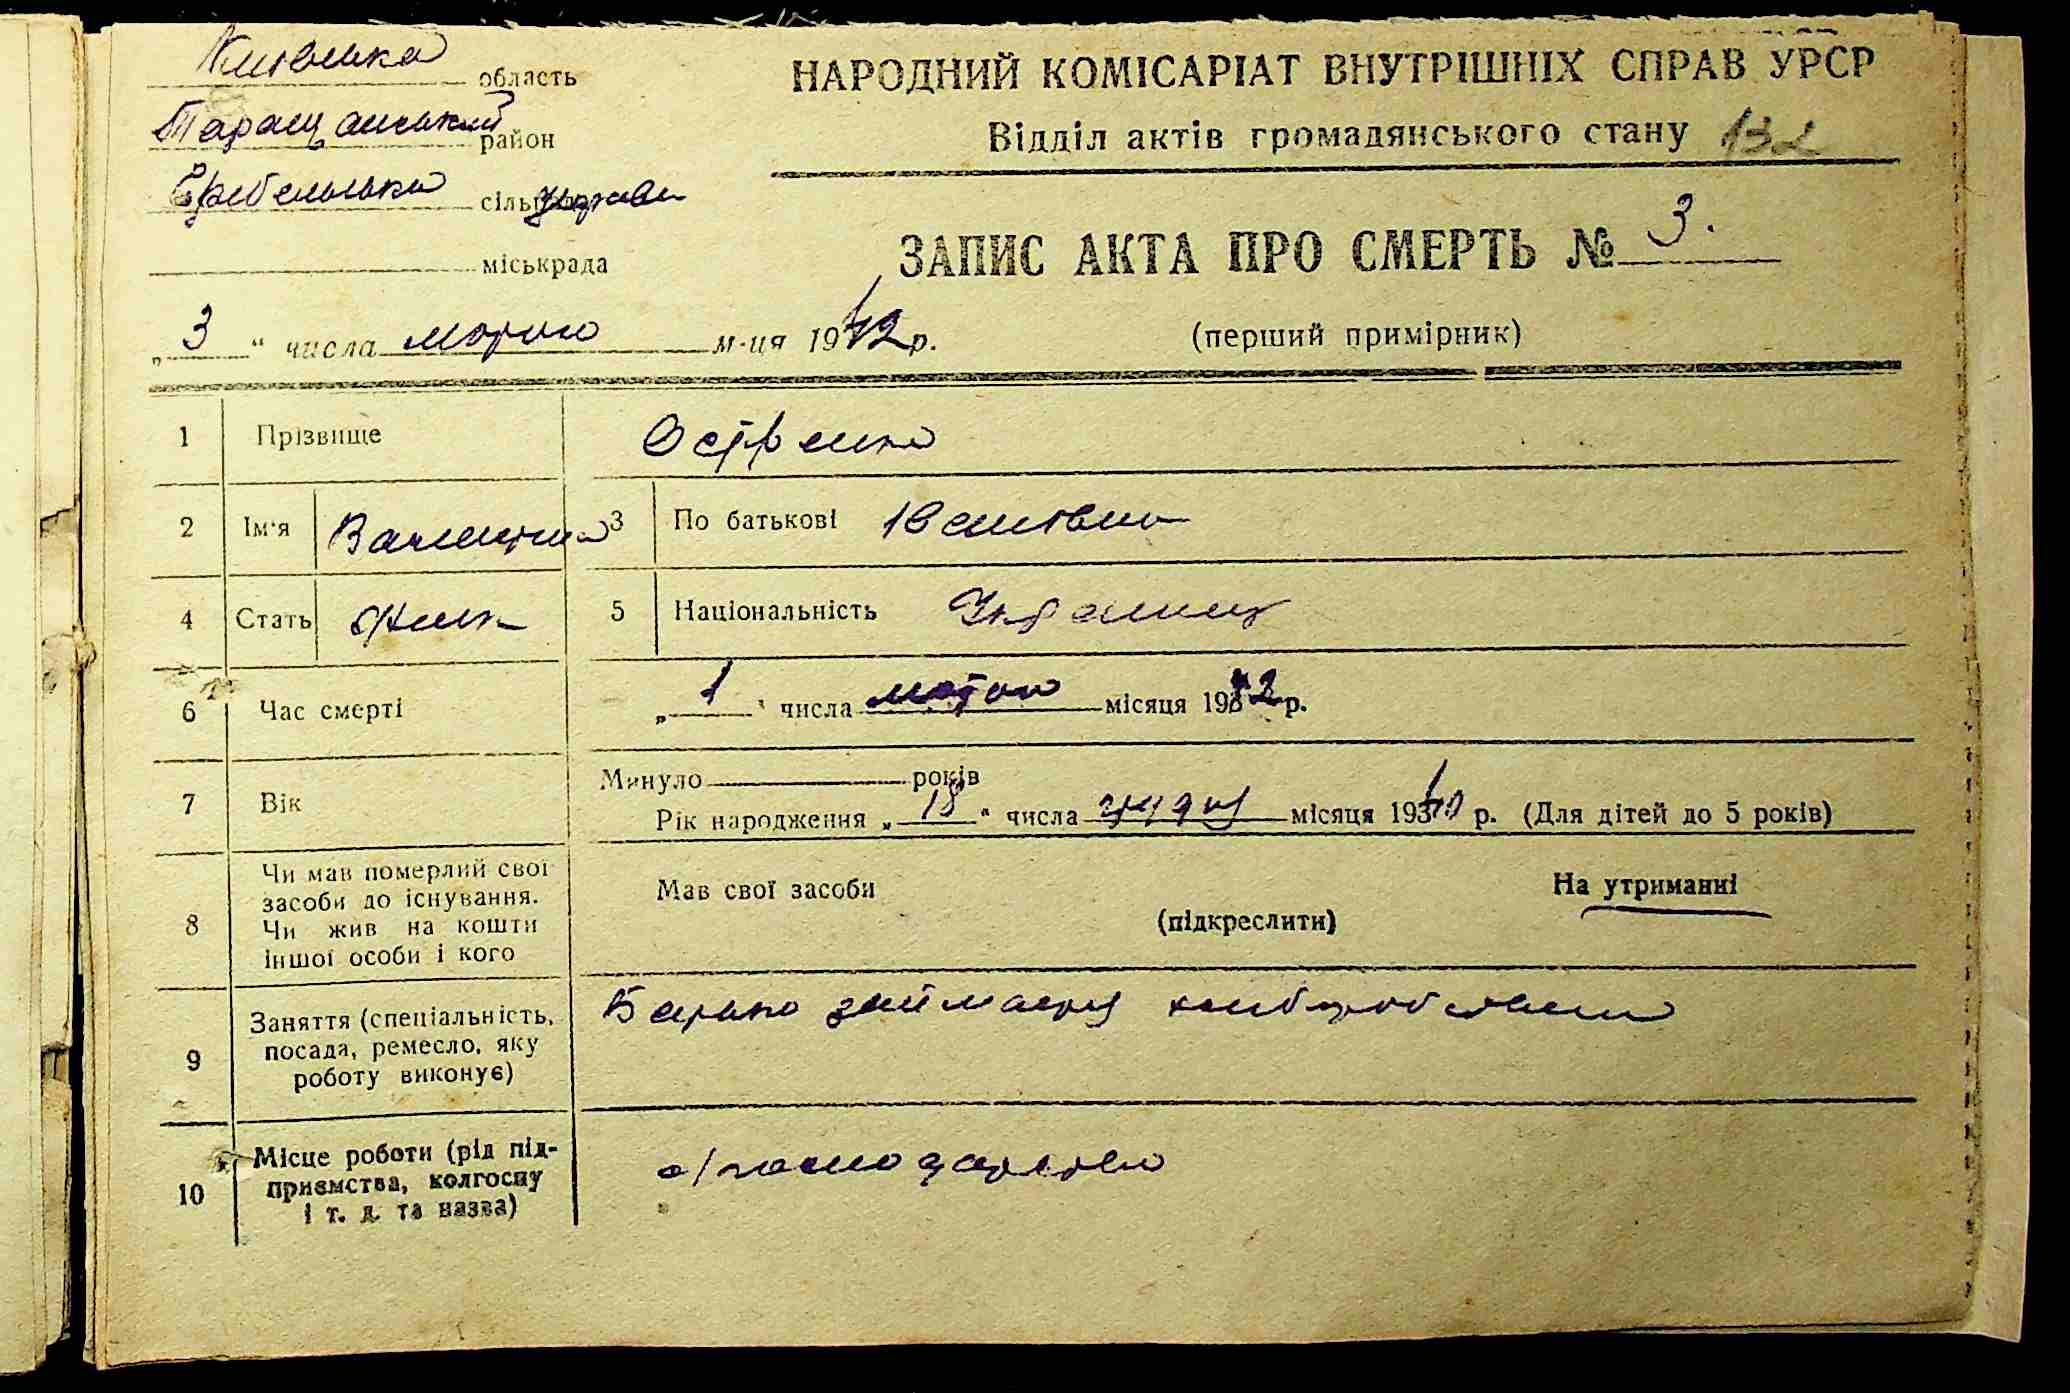 Київська область
НАРОДНИЙ КОМІСАРІАТ ВНУТРІШНІХ СПРАВ УРСР
Таращанський район
Відділ актів громадянського стану 132
сіль управи
ЗАПИС АКТА ПРО СМЕРТЬ № 3.
міськрада
„3“ числа лютого м-ця 1942 р.
(перший примірник)
1 Прізвище
2 Ім'я Валентина 3 По батькові Іванівна
4 Стать жін 5 Національність
6 Час смерті „1“ числа лютого місяця 1942 р.
7 Вік Минуло років
Рік народження „18“ числа місяця 1940 р. (Для дітей до 5 років)
8 Чи мав померлий свої
засоби до існування.
Чи жив на кошти
іншої особи і кого
Мав свої засоби
На утриманні
(підкреслити)
9 Заняття (спеціальність,
посада, ремесло, яку
роботу виконує)
Батько займається
10 Місце роботи (рід під-
приємства, колгоспу
і т. д. та назва)